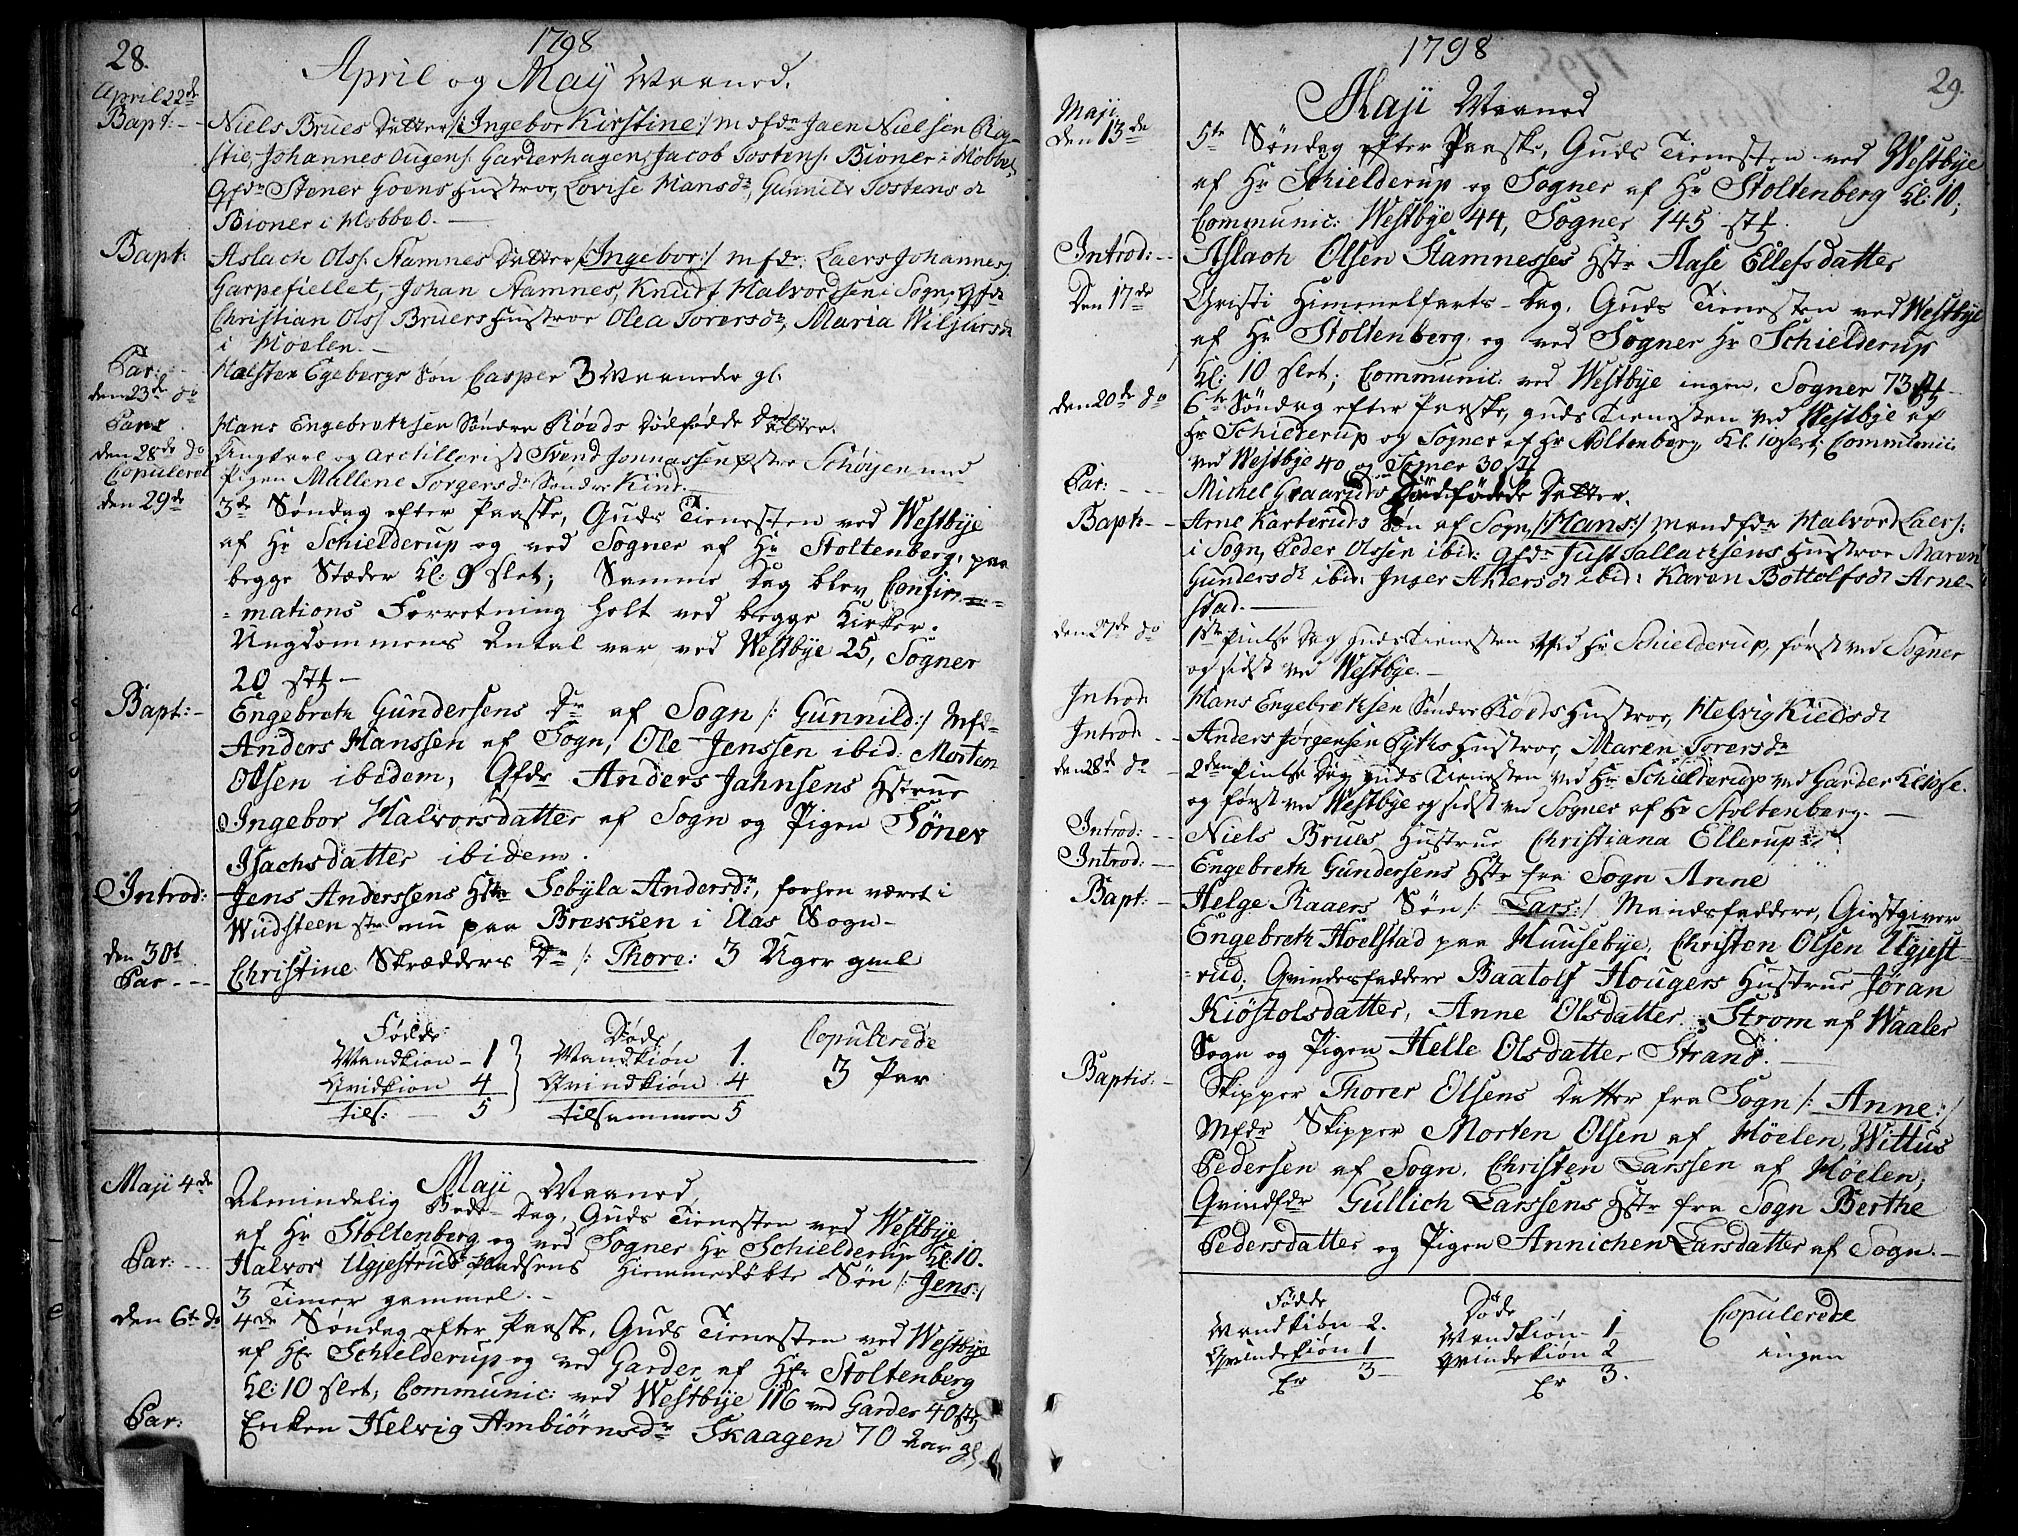 28.
1798
April og May Maaned.
April 22de
Bapt: - Niels Brues Datter /: Ingebor Kirstine :/ mdfdr Jaen Nielsen
Johannes Ougens: Garderhagen, Jacob Tostens: Bioner i Mobbel
Qfdr Stener Hustroe, Lovise Hansdr, Gunnild Tostensdr
Bioner i Mobbel. -
Bapt: Aslach Ols: Stamnes Datter /: Ingebor :/ mfdr: Laers Johannes:
Garpefiellet, Johan Stamnes, Knudt Halvordsen i Sogn, Qfdr
Christian Ols: Bruers Hustroe Olea Torersdr, Maria
i Moelen. -
Par: - Halsten Egebergs Søn Casper 3 Maaneder gl:
den 23de do
Par: Hans Engebrethsen Søndre Røeds Dødfødde Datter.
den 28de do Ungkarl og Artillerist Svend Jonnassen Schøyen med
Copuleret Pigen Mallene Torgersdr Søndre Kind. -
den 29de 3de Søndag efter Paaske, Guds Tienesten ved Westbÿe
af Hr Schielderup og ved Sogner af Hr Stoltenberg, paa
begge Stæder Kl: 9 Slet; Samme Dag blev Confir=
=mations Forretning holt ved begge Kirker.
Ungdommens Antal var ved Westbÿe 25, Sogner
20 stk -
Bapt: - Engebreth Gundersens Dr af Sogn /: Gunnild :/ Mfdr
Anders Hanssen af Sogn, Ole Jenssen ibid: Morten
Olsen ibidem, Qfdr Anders Jahnsens Hstrue
Ingebor Halvorsdatter af Sogn og Pigen Sönev
Isachsdatter ibidem.
Introd: Jens Anderssens Hstr Sebÿla Andersdr, forhen været i
Wudsteen nu paa Brekken i Aas Sogn -
den 30t
Par - - Christine Skrædders Dr /: Thore: 3 Uger gml
Födde Døde Copulerede
Mandkiøn - 1 Mandkiøn 1. 3 Par
Qvindkiøn 4 Qvindkiøn 4
tils: - 5 tilsammen 5
Maji Maaned
Maji 4de Almindelig Bede-Dag, Guds Tienesten ved Westbÿe
af Hr Stoltenberg og ved Sogner Hr Schielderup Kl: 10.
Par: - - Halvor Ugjestrud Hiemmedøbte Søn /: Jens :/
3 Timer gammel. -
den 6te do 4de Søndag efter Paaske, Guds Tienesten ved Westbÿe
af Hr Schielderup og ved Garder af Hr Stoltenberg
Kl: 10 Slet, Communic: ved Westbÿe 116 ved Garder 40 stk
Par: Enken Helvig Ambiørnsdr Skaagen 70 Aar gl
1798
29.
Maji Maaned
Maji
den 13de 5te Søndag efter Paaske, Guds Tienesten ved Westbÿe
af Hr Schielderup og Sogner af Hr Stoltenberg Kl: 10,
Communic: Westbÿe 44, Sogner 145 stk.
Introd: - Aslach Olsen Stamnesses Hstr Aase Ellefsdatter
Den 17de Christi Himmelfarts-Dag, Guds Tienesten ved Westbÿe
af Hr Stoltenberg og ved Sogner Hr Schielderup
Kl: 10 Slet; Communic: ved Westbÿe ingen, Sogner 73 stk
den 20de do 6te Søndag efter Paaske, Guds Tienesten ved Westbÿe af
Hr Schielderup og Sogner af Hr Stoltenberg, Kl. 10 slet; Communic:
ved Westbÿe 40 og Sogner 30 stk
Par: - - - Michel Graaruds Dödfödde Datter.
Bapt: - Arne Karteruds Søn af Sogn /: Hans :/ mandfdr Halvord Laers:
i Sogn, Peder Olssen ibid: Qfdr Just Tallachsens Hustroe Maren
Gundersdr ibid: Inger Ahlersdr ibid: Karen Bottolfsdr Arne-
stad. -
den 27de do 1ste Pintse Dag Guds Tienesten ved Hr Schielderup, först ved Sogner
og sidst ved Westbÿe. -
Introd: Hans Engebrethsen Søndre Röeds Hustroe, Helvig Kieldsdr
Introd: - - Anders Jørgensen Pÿths Hustroe, Maren Torersdr
den 28de do - 2den Pintse Dag Guds Tienesten ved Hr Schielderup ved Garder Kirke.
og först ved Westbÿe og sidst ved Sogner af Hr Stoltenberg. -
Introd: - - Niels Brues Hustrue Christiana Ellerupsdr
Introd: - Engebreth Gundersens Hstr fra Sogn Anne
Bapt: - Helge Raaers Søn /: Lars :/ Mandsfaddere, Giestgiver
Engebreth Hoelstad paa Huusebÿe, Christen Olsen Ugjest-
=rud, Qvindesfaddere Baatolf Hougers Hustrue Jøran
Kiöstolsdatter, Anne Olsdatter Strom af Waaler
Sogn og Pigen Helle Olsdatter Strand. -
Baptis: - Skipper Thorer Olsens Datter fra Sogn /: Anne :/
Mfdr Skipper Morten Olsen af Möelen, Wittus
Pedersen af Sogn, Christen Larssen af Möelen,
Qvindfdr Gullich Larssens Hstr fra Sogn Berthe
Pedersdatter og Pigen Annichen Larsdatter af Sogn. -
Födde Døde Copulerede
Mandkiön - 2. Mandkiön - 1 ingen
Qvindekiön 1 Qvindekiön 2
Er 3 - Er 3.